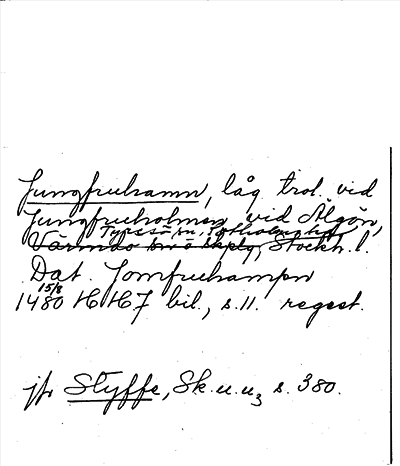 Jungfruhamn, låg trol. vid
Jungfruholmen vid Älgön,
Tyresö sn, Sotholms hd,
Värmdö sn o skplg, Stockh. l.
Dat. Jomfruhampn
15/8
1480 HH 7 bil., s. 11. regest.
jfr Styffe, Sk. u. u3 s. 380.